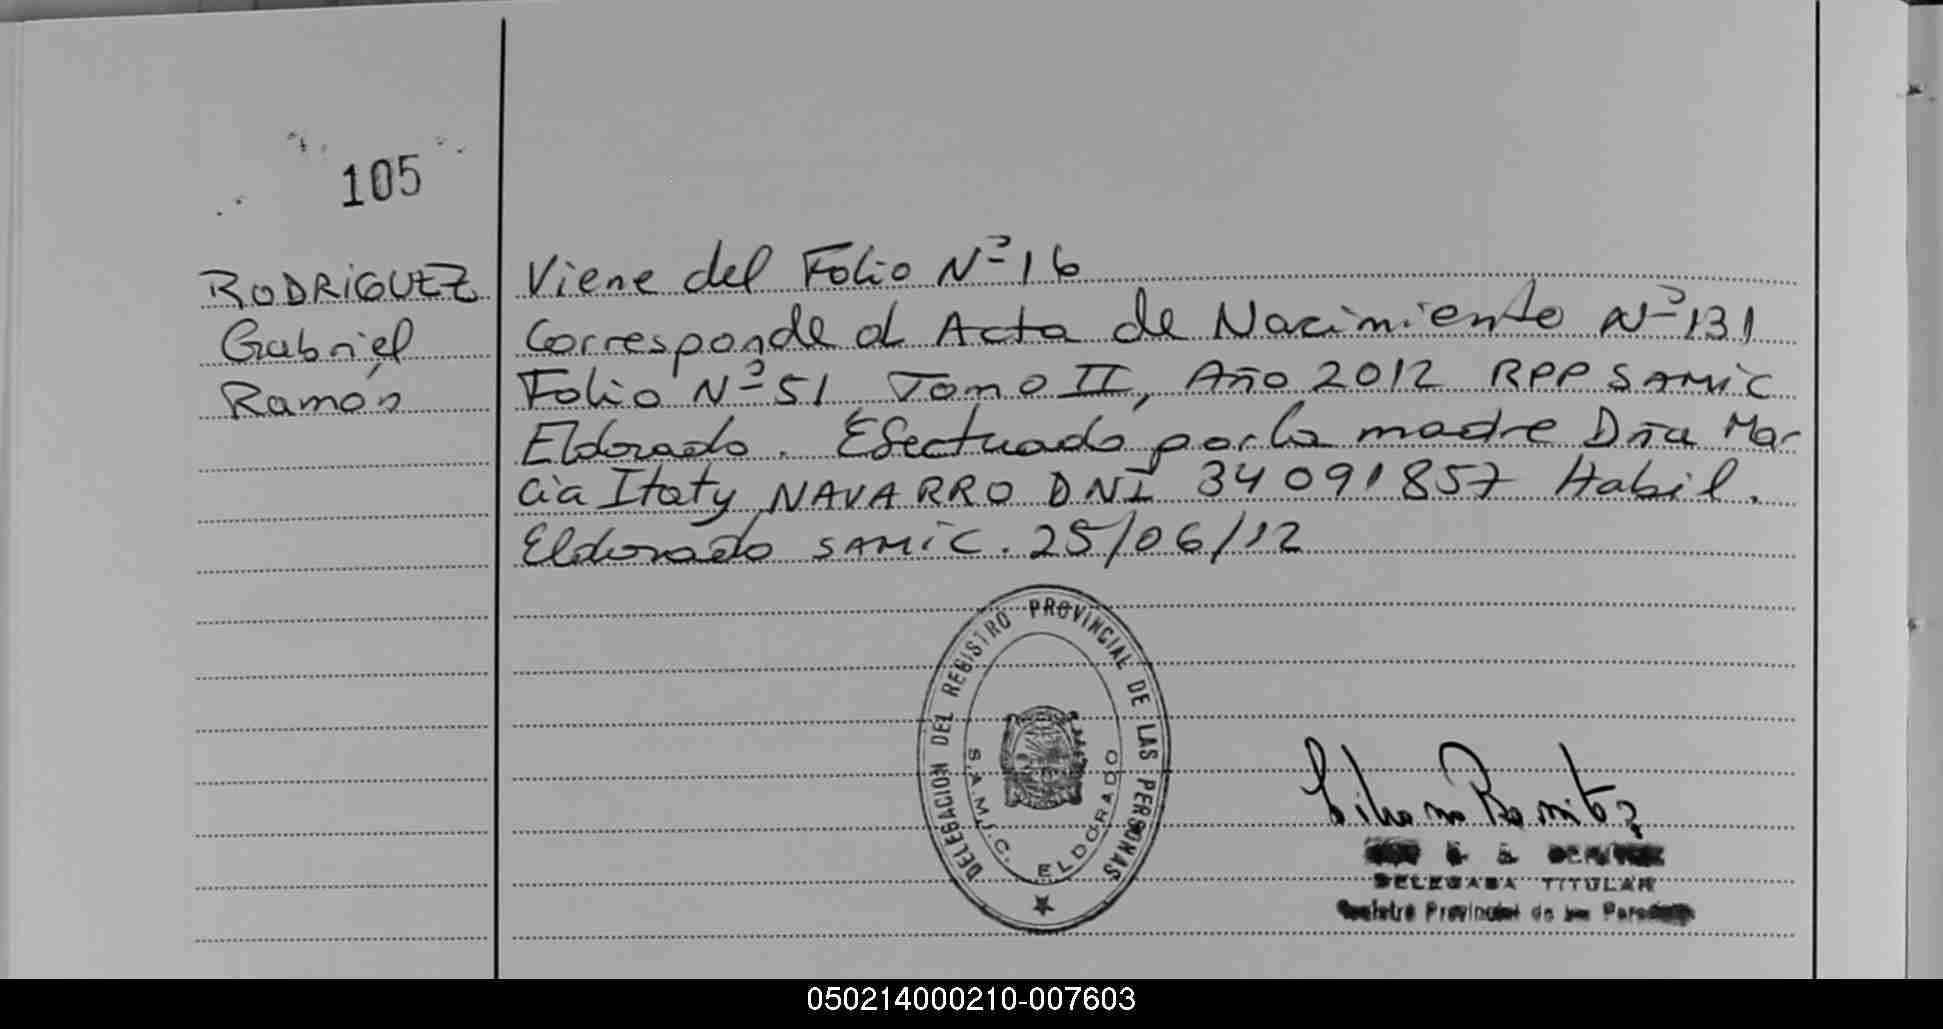 105
RODRIGUEZ
Gabriel
Ramón
Viene del Folio Nº 16
Corresponde al Acta de Nacimiento Nº 131
Folio Nº 51 Tomo II, Año 2012 RPP SAMIC
Eldorado. Efectuado por la madre Dña Mar-
cia Itaty NAVARRO DNI 34091857 Habil.
Eldorado SAMIC. 25/06/12
DELEGACION DEL REGISTRO PROVINCIAL DE LAS PERSONAS
S.A.M.I.C. ELDORADO
DELEGADA TITULAR
Registro Provincial de las
050214000210-007603